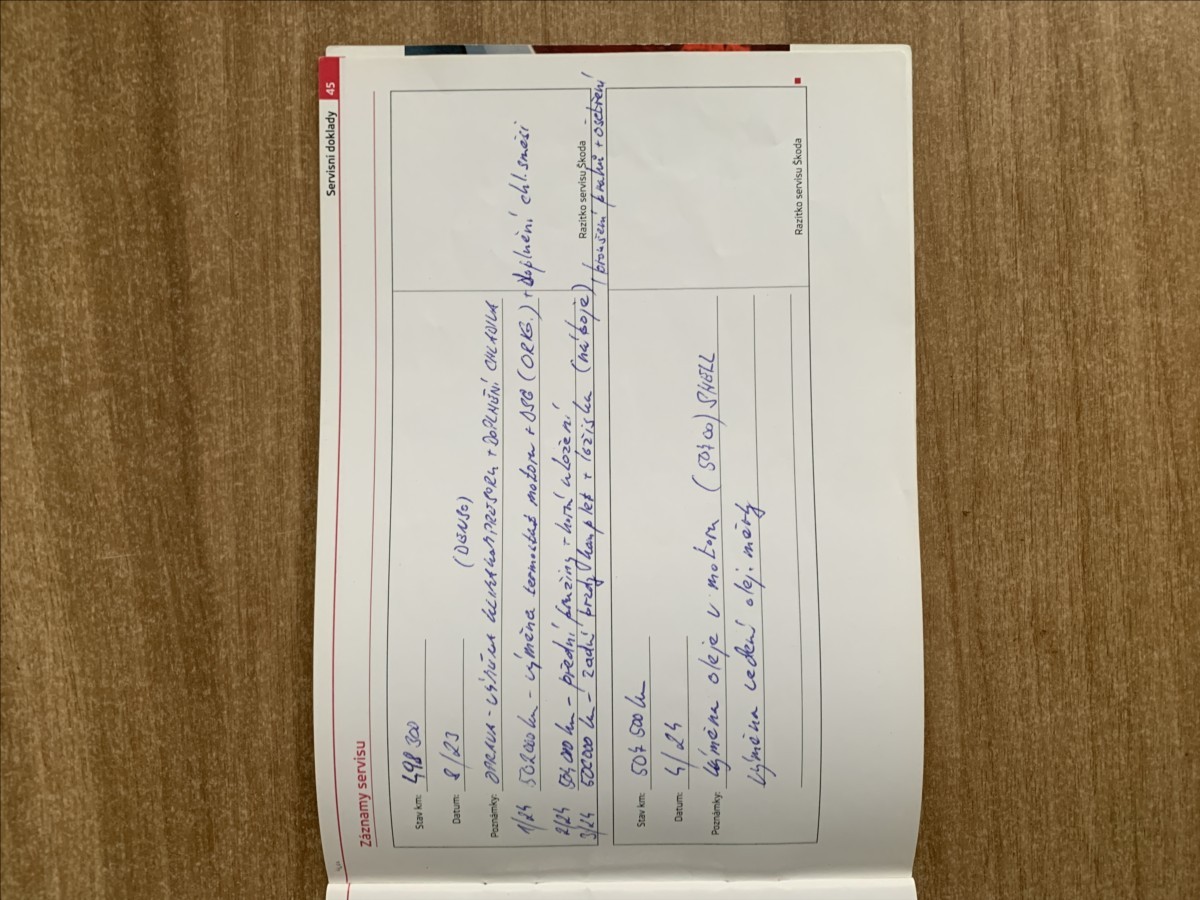 Servisní doklady 45
Záznamy servisu
Stav km: 498 300
Datum: 8/23
(DENSO)
Poznámky: OPRAVA - VÝMĚNA KOMPRESORU + DOPLNĚNÍ CHLADIVA
1/24 502000 km - výměna termostat motoru + DSG (ORIG.) + doplnění chl. směsi
2/24 504 000 km - přední pružiny + horní uložení
3/24 - zadní brzdy komplet + ložiska (náboje)
broušení prahů + ošetření
Razítko servisu Škoda
Stav km: 507 500 km
Datum: 4/24
Poznámky: Výměna oleje v motoru (507 00) SHELL
Výměna vedení olej. měrky
Razítko servisu Škoda